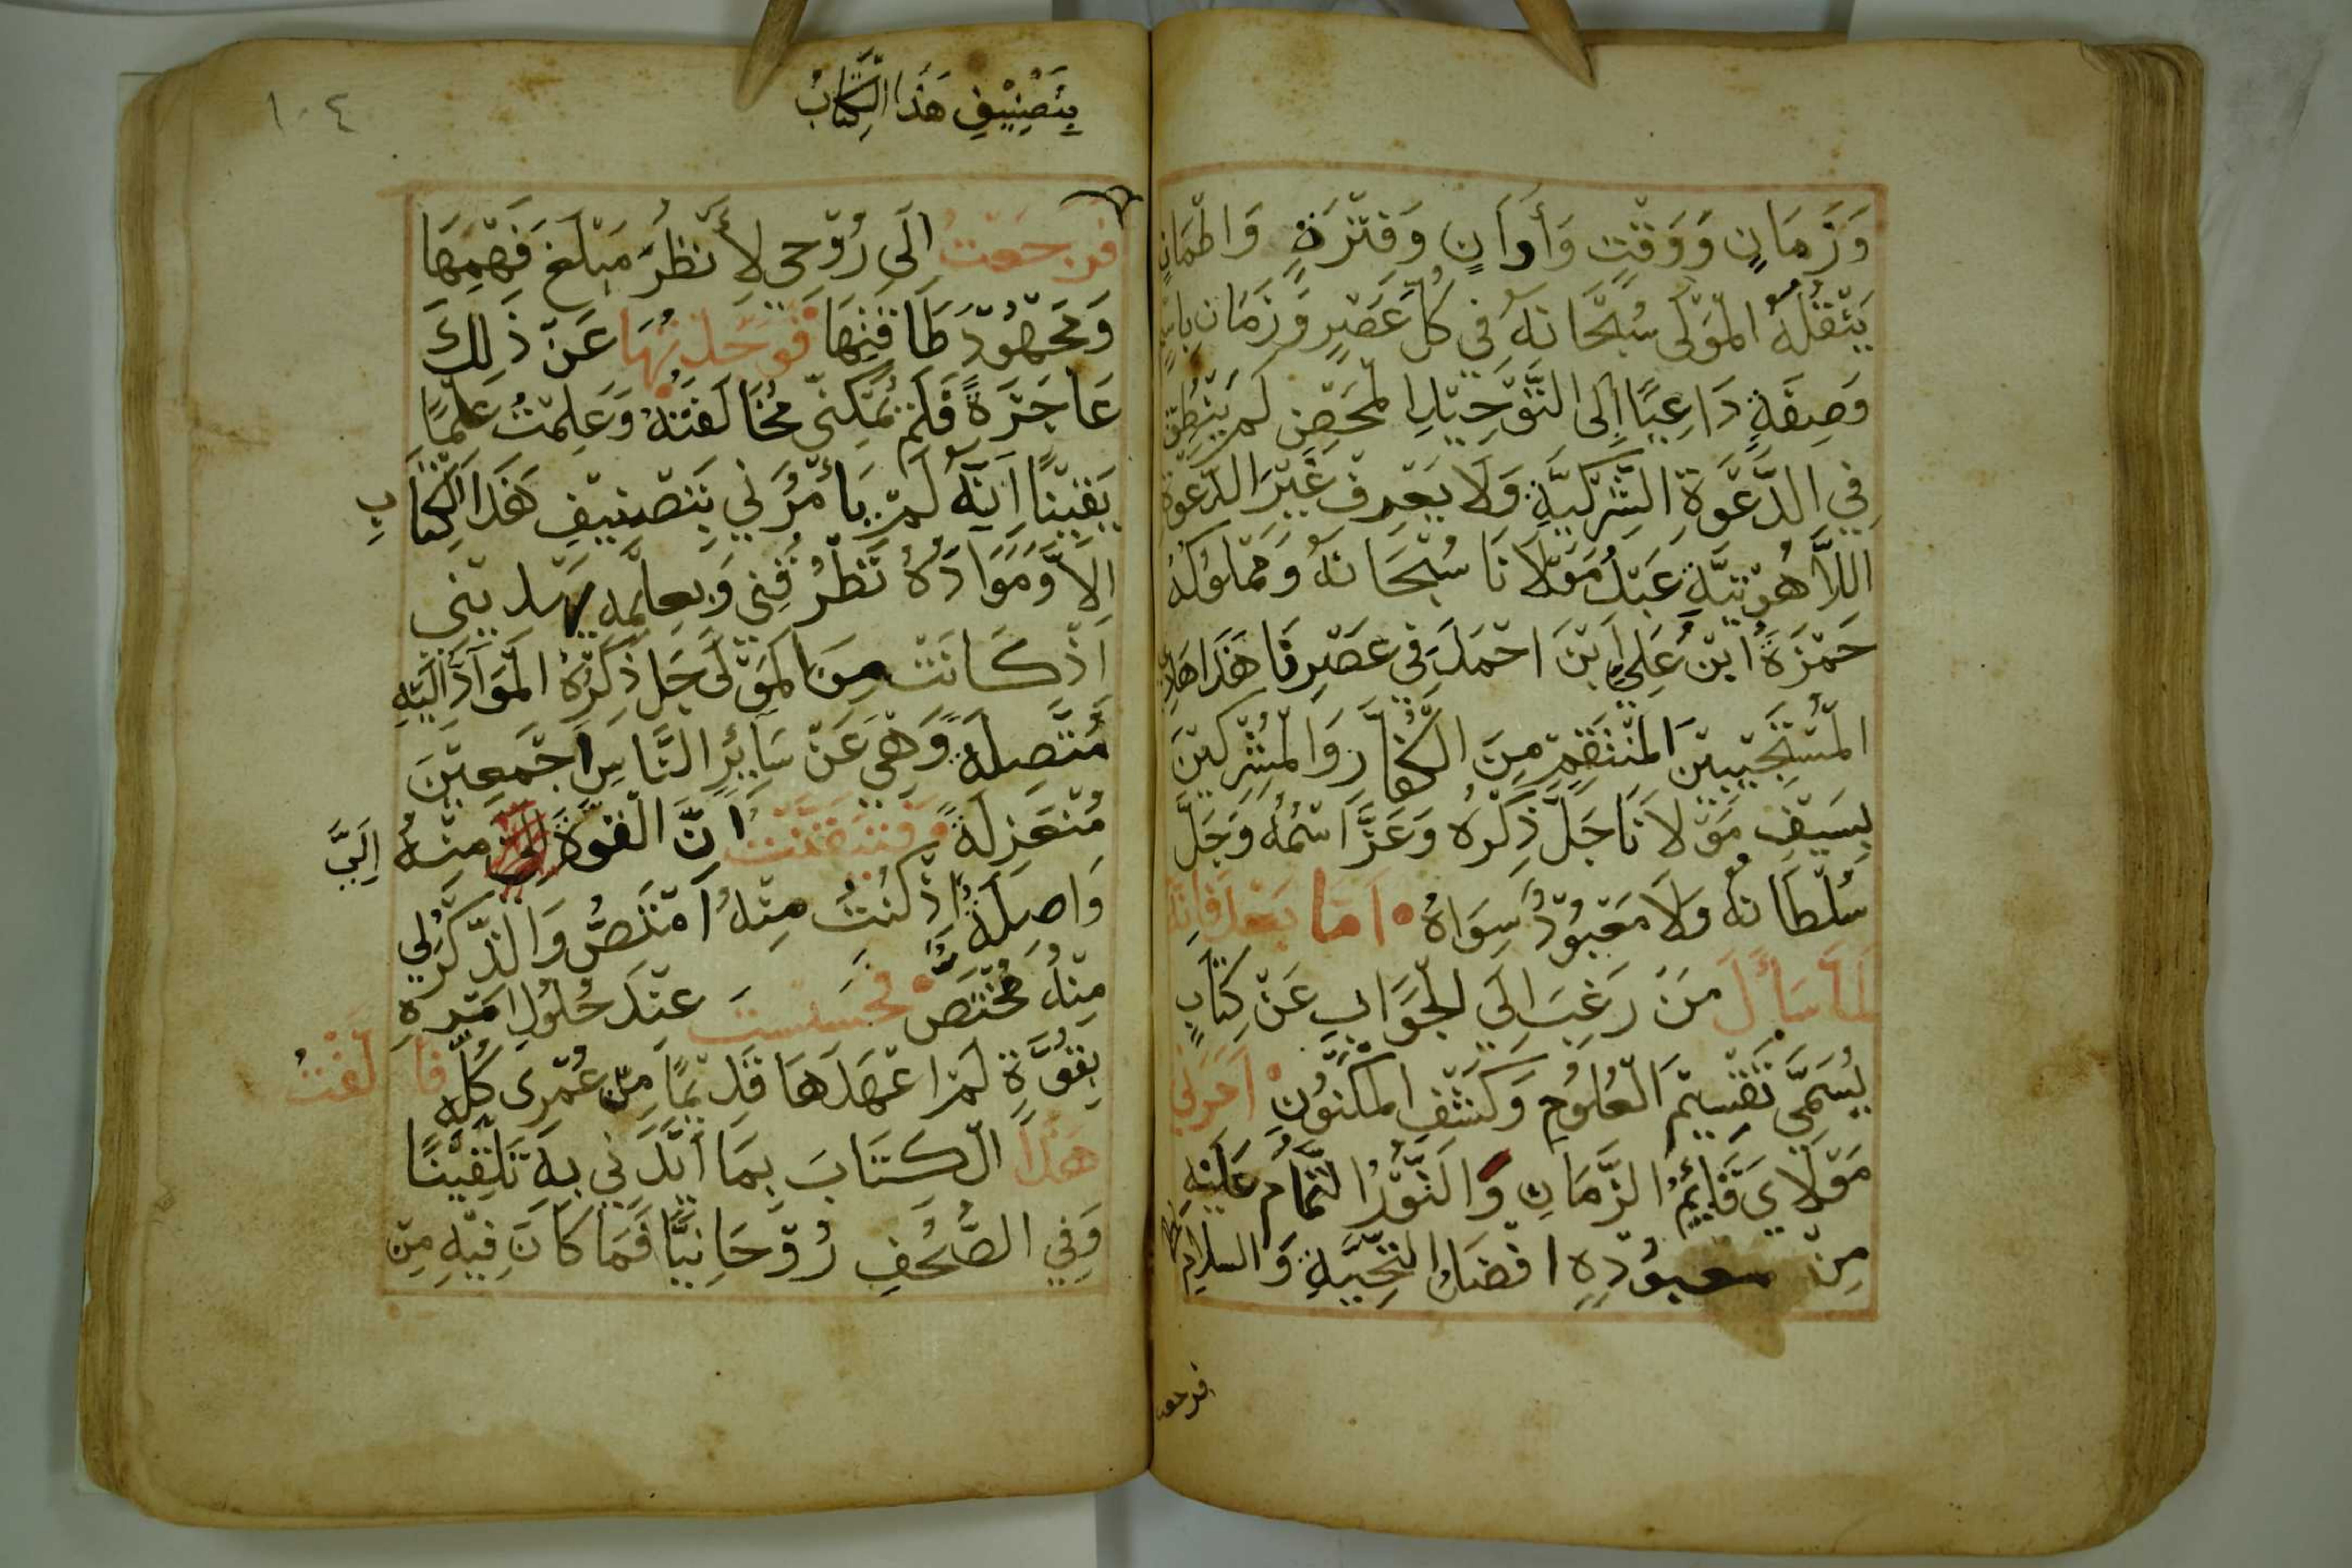 وَزَمَانٍ وَوَقْتٍ وَأَوَانٍ وَفَتْرَةٍ وَاطْمَانٍ
يَنْقُلُهُ الْمَوْلَى سُبْحَانَهُ فِي كُلِّ عَصْرٍ وَزَمَانٍ
وَصِفَةٍ دَاعِيًا إِلَى التَّوْحِيْدِ الْمَحْضِ لَمْ يَنْطِقْ
فِي الدَّعْوَةِ الشِّرْكِيَّةِ وَلَا يَعْرِفْ غَيْرَ الدَّعْوَةِ
اللَّاهُوْتِيَّةِ عَبْدُ مَوْلَانَا سُبْحَانَهُ وَمَمْلُوْكُهُ
حَمْزَةُ ابْنُ عَلِيِّ ابْنَ احْمَدَ فِي عَصْرِنَا هَذَا هَادِي
الْمُسْتَجِيْبِيْنَ الْمُنْتَقِمِ مِنَ الْكُفَّارِ وَالْمُشْرِكِيْنَ
بِسَيْفِ مَوْلَانَا جَلَّ ذِكْرُهُ وَعَزَّ اسْمُهُ وَجَلَّ
سُلْطَانُهُ وَلَا مَعْبُوْدٌ سِوَاهُ ۰ امَا بَعْدُ فَانَّهُ
لَمَا سَأَلَ مَنْ رَغِبَ الَي الْجَوَابِ عَنْ كِتَابٍ
يُسَمَّى تَقْسِيْمَ الْعُلُوْمِ وَكَشْفِ الْمَكْنُوْنِ اَمَرَنِي
مَوْلَايَ قَايِمُ الزَّمَانِ وَالنُّوْرُ التَّمَامُ عَلَيْهِ
مِنْ مَعبُوْدِهِ افْضَلُ التَّحِيَّةِ وَالسلام
فرجعت
١٠٤
بِتَصْنِيْفِ هَذَا الْكِتَابُ
فرَجَعْتُ الَى رُوْحِي لِأَنْظُرَ مَبْلَغَ فَهْمِهَا
وَمَجْهُوْدَ طَاقَتِهَا فَوَجَدْتُهَا عَنْ ذَلِكَ
عَاجِزَةً فَلَمْ يُمْكِنِّي مُخَالَفَتَهُ وَعَلِمْتُ عِلْمًا
يَقِيْنًا اَنَّهُ لَمْ يَأْمُرُنِي بِتَصْنِيْفِ هَذَا الْكِتَابِ
الَّا وَمَوَادُهُ تَطْرُقُنِي وَبِعِلْمِهِ يَهْدِيْنِي
اِذْ كَانَتْ مِنَ الْمَوْلَى جَلَ ذِكْرُهُ الْمَوَادُ اِلَيْهِ
مُتَّصِلَةً وَهِي عَنْ سَايِرِ النَّاسِ اَجْمَعِيْنَ
مُنْعَزِلَةً فَتَيَقَّنْتُ انَّ الْقُوَّةَ مِنْهُ اِلَيَّ
وَاصِلَةٌ اِذْ كُنْتُ مِنْهُ اَمْتَصُّ وَالذِّكْرُ لِي
مِنْهُ مُخْتَصٌّ ۰ فَحَسَسْتَ عِنْدَ حُلُوْلِ امْرِهِ
بِقُوَّةٍ لَمْ اعْهَدَهَا قَدِيْمًا مِنْ عُمْرِى كُلِّهِ فَأَلَّفْتُ
هَذَا الْكِتَابَ بِمَا اَيَّدَنِي بِهِ تَلْقِيْنًا
وَفِي الصُّحُفِ رُوْحَانِيًّا فَمَا كَانَ فِيْهِ مِنْ